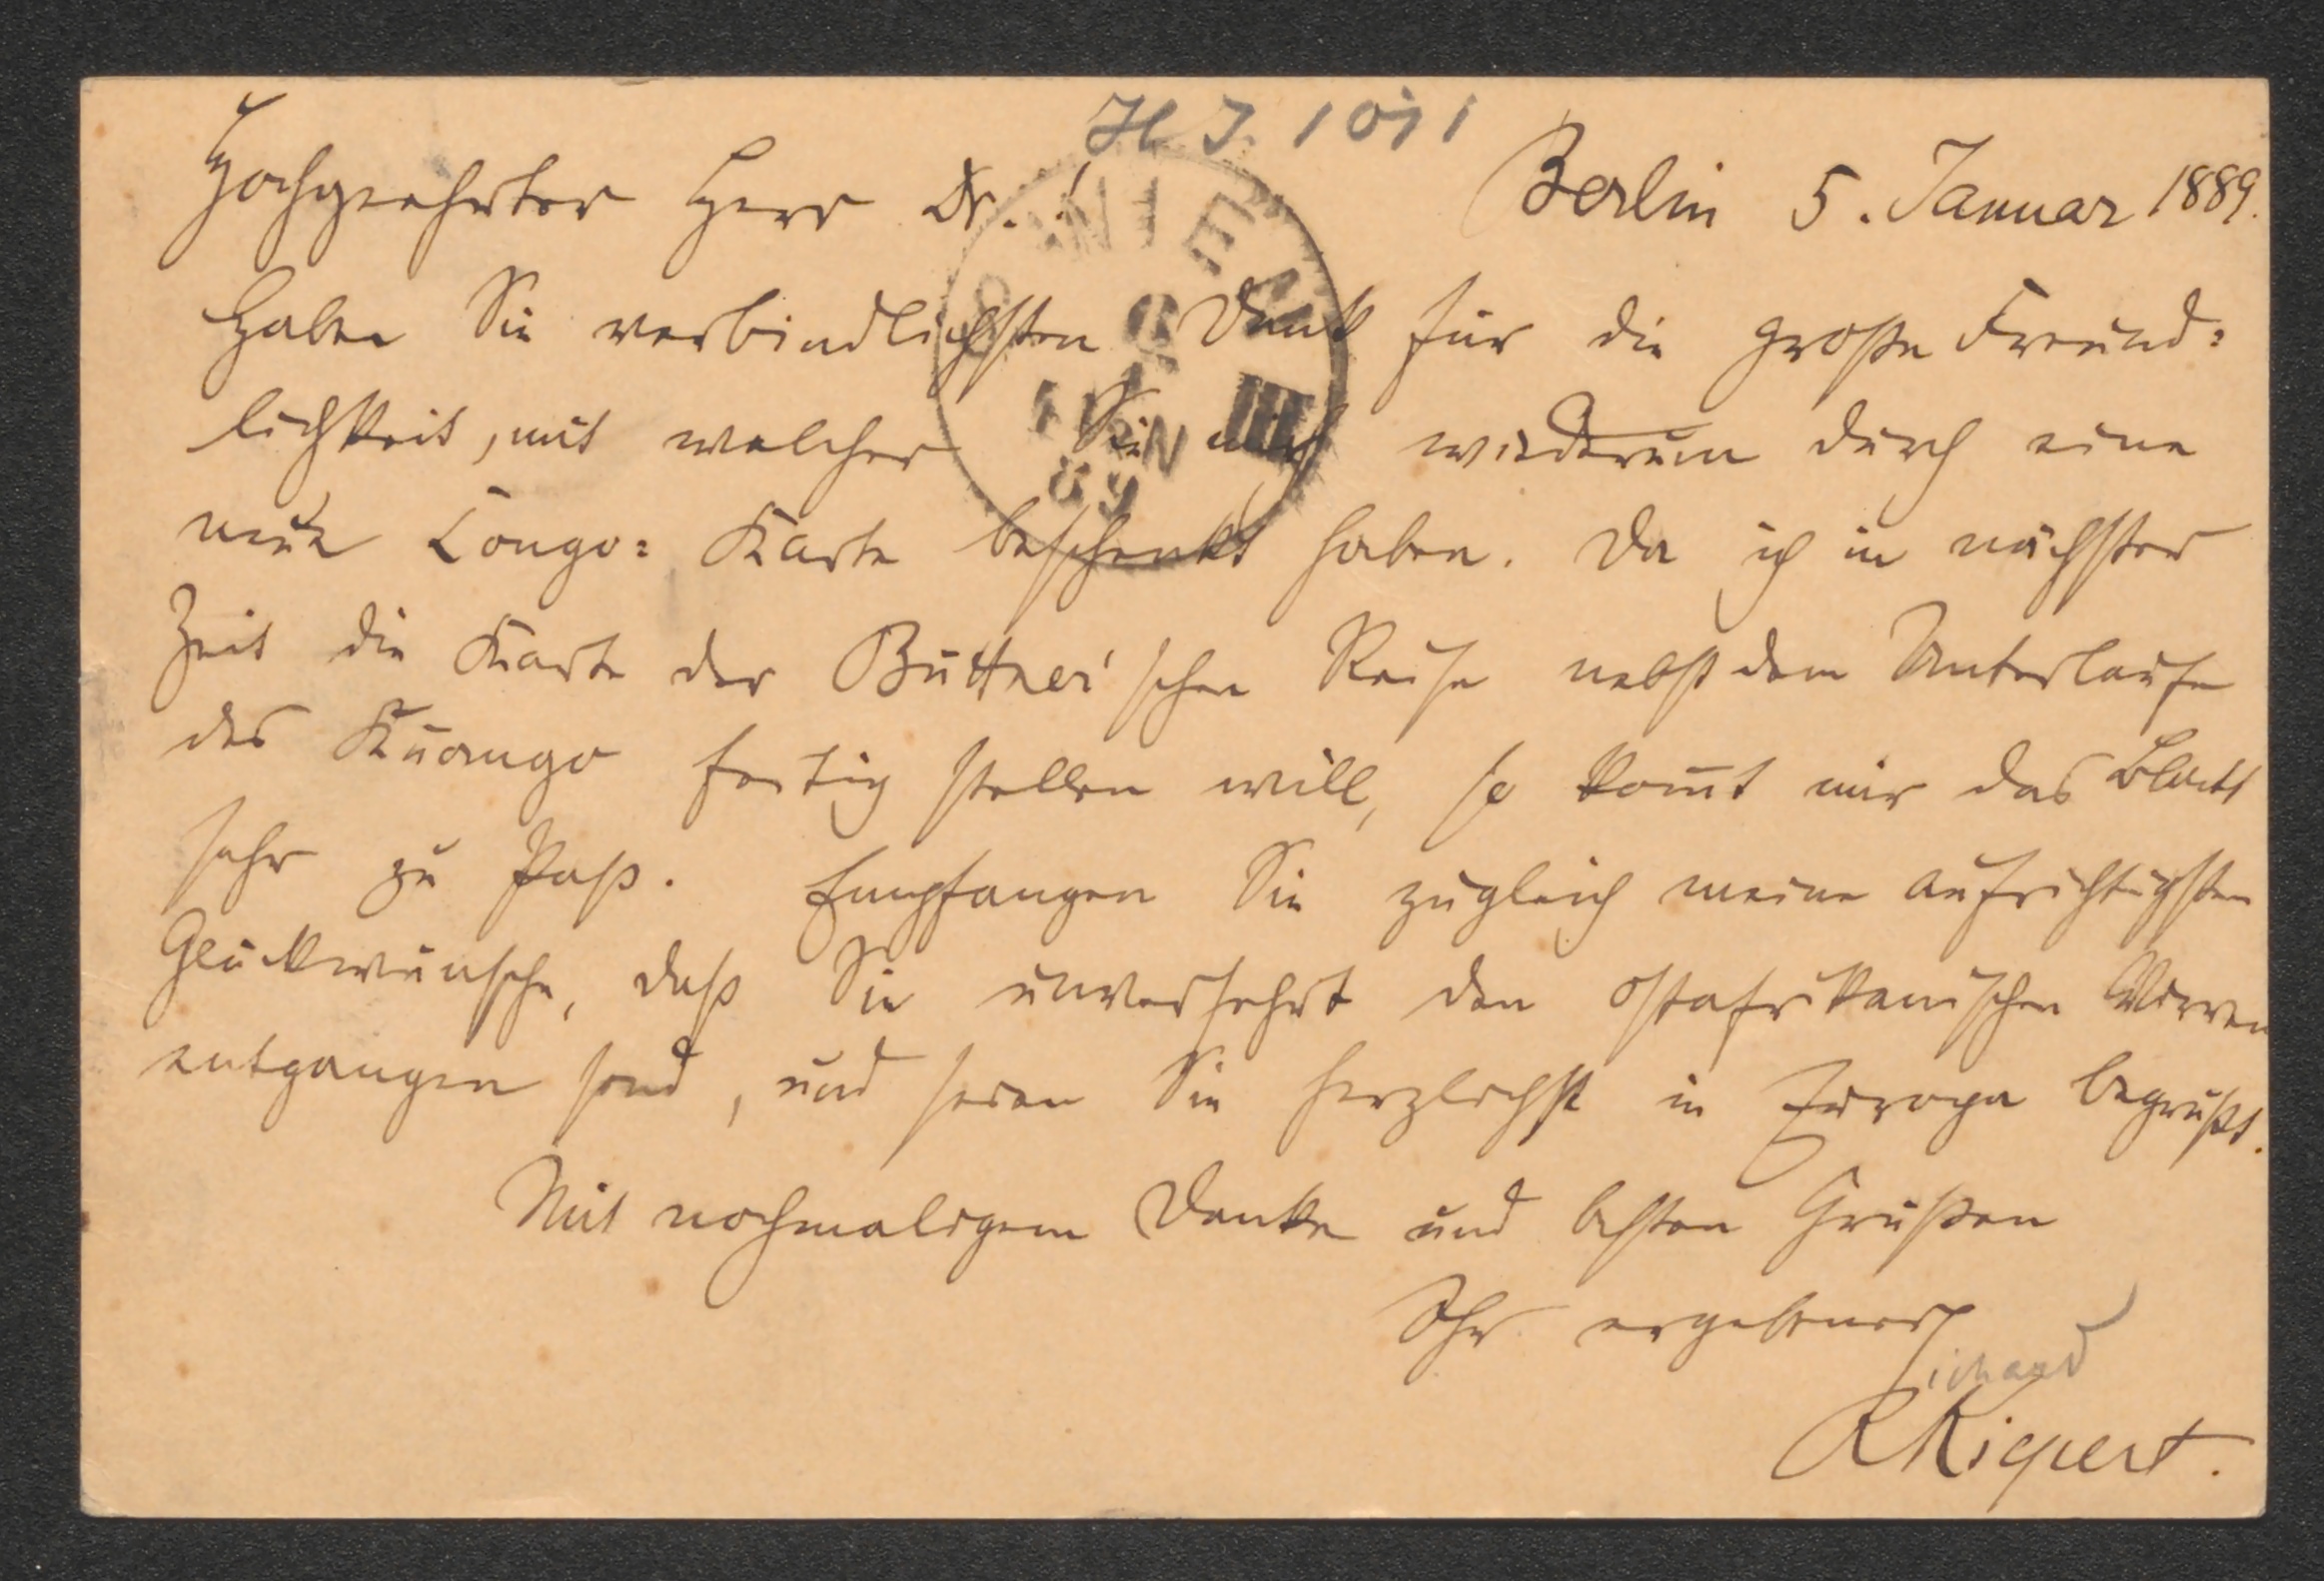 H. I. 1011
Hochgeehrter Herr Dr.! Berlin 5. Januar 1889.
WIEN
6
1 89
III
Haben Sie verbindlichsten Dank für die große Freund-
lichkeit, mit welcher Sie mich wiederum durch eine
neue Congo-Karte beschenkt haben. Da ich in nächster
Zeit die Karte der Büttner'schen Reise nebst dem Unterlaufe
des Kuango fertig stellen will, so kom̅t mir das Blatt
sehr zu Paß. Empfangen Sie zugleich meine aufrichtigsten
Glückwünsche, daß Sie unversehrt den ostafrikanischen Wirren
entgangen sind, und seien Sie herzlichst in Europa begrüßt.
Mit nochmaligem Danke und besten Grüßen
Ihr ergebenster
Richard
RKiepert.